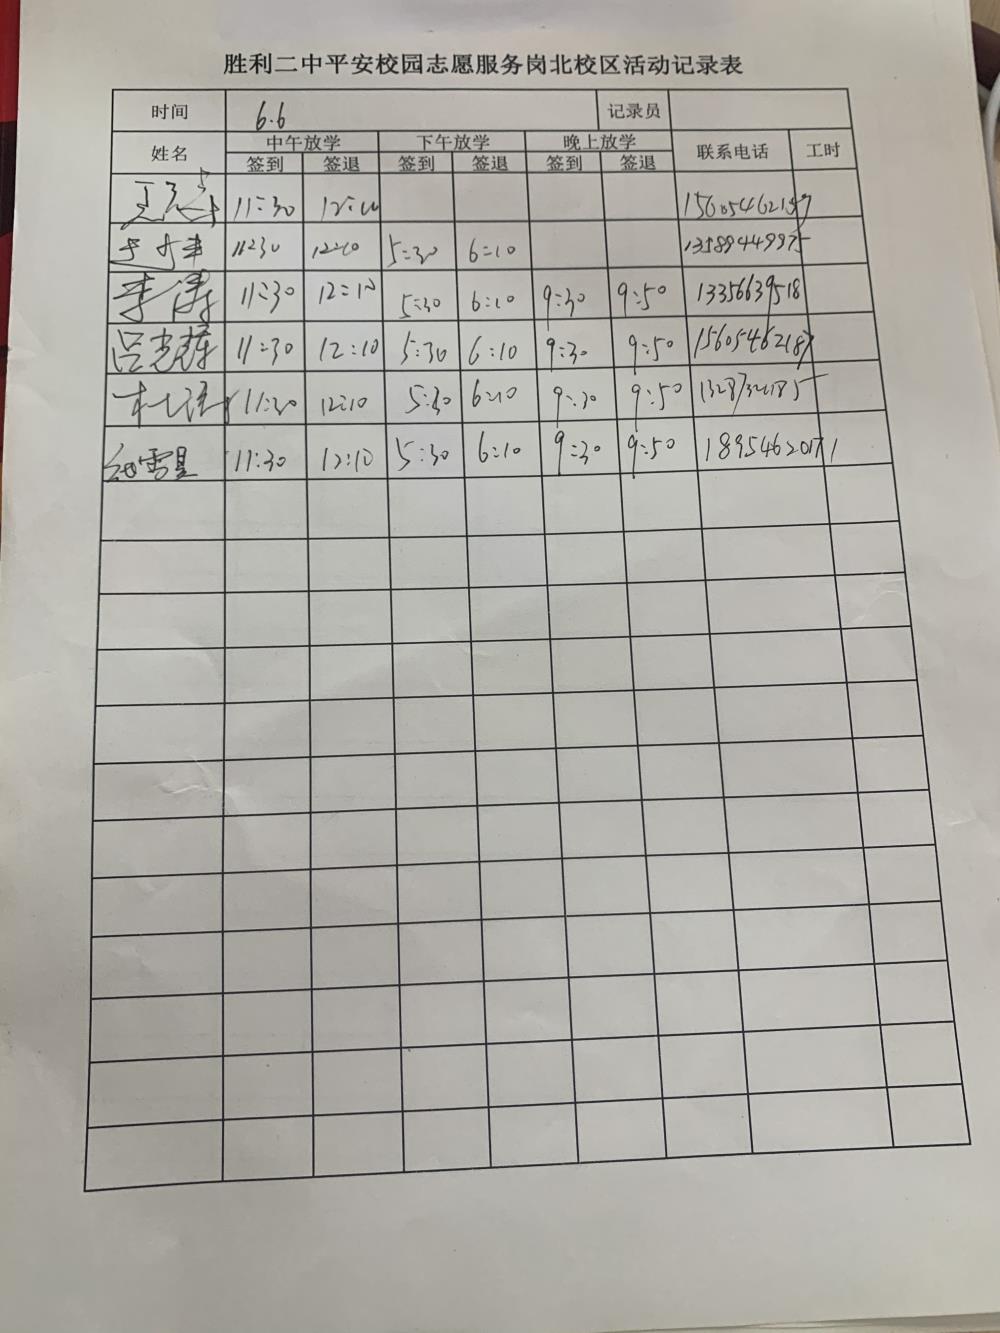 胜利二中平安校园志愿服务岗北校区活动记录表
时间 6.6 记录员
姓名 中午放学 下午放学 晚上放学 联系电话 工时
签到 签退 签到 签退 签到 签退
11:30 12:10 15605462187
11:30 12:10 5:30 6:10 13589449975
李涛 11:30 12:10 5:30 6:10 9:30 9:50 13356639518
11:30 12:10 5:30 6:10 9:30 9:50 15605462187
11:30 12:10 5:30 6:10 9:30 9:50
11:30 12:10 5:30 6:10 9:30 9:50 18954620171